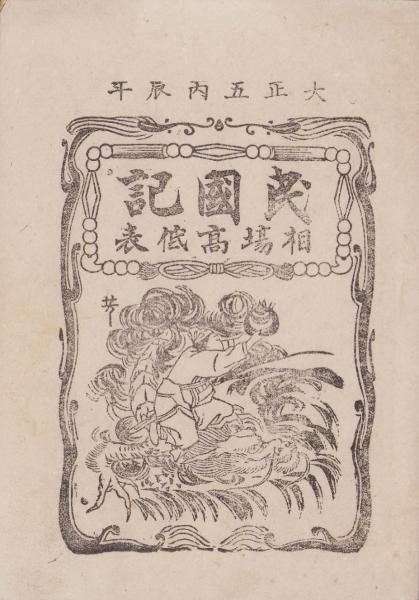 大正五丙辰年
茂國記
相場高低表